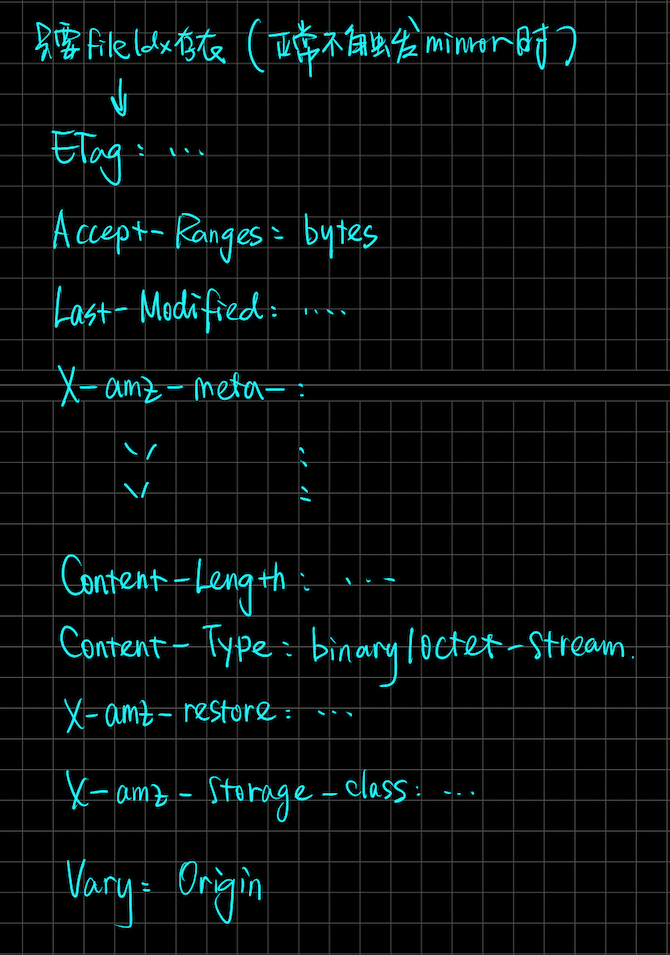 只要fileIdx存在（正常不触发mirror时）
↓
ETag: ...
Accept-Ranges: bytes
Last-Modified: ....
X-amz-meta-:
〃 :
〃 :
Content-Length: ...
Content-Type: binary/octet-stream.
X-amz-restore: ...
X-amz-storage-class: ...
Vary: Origin